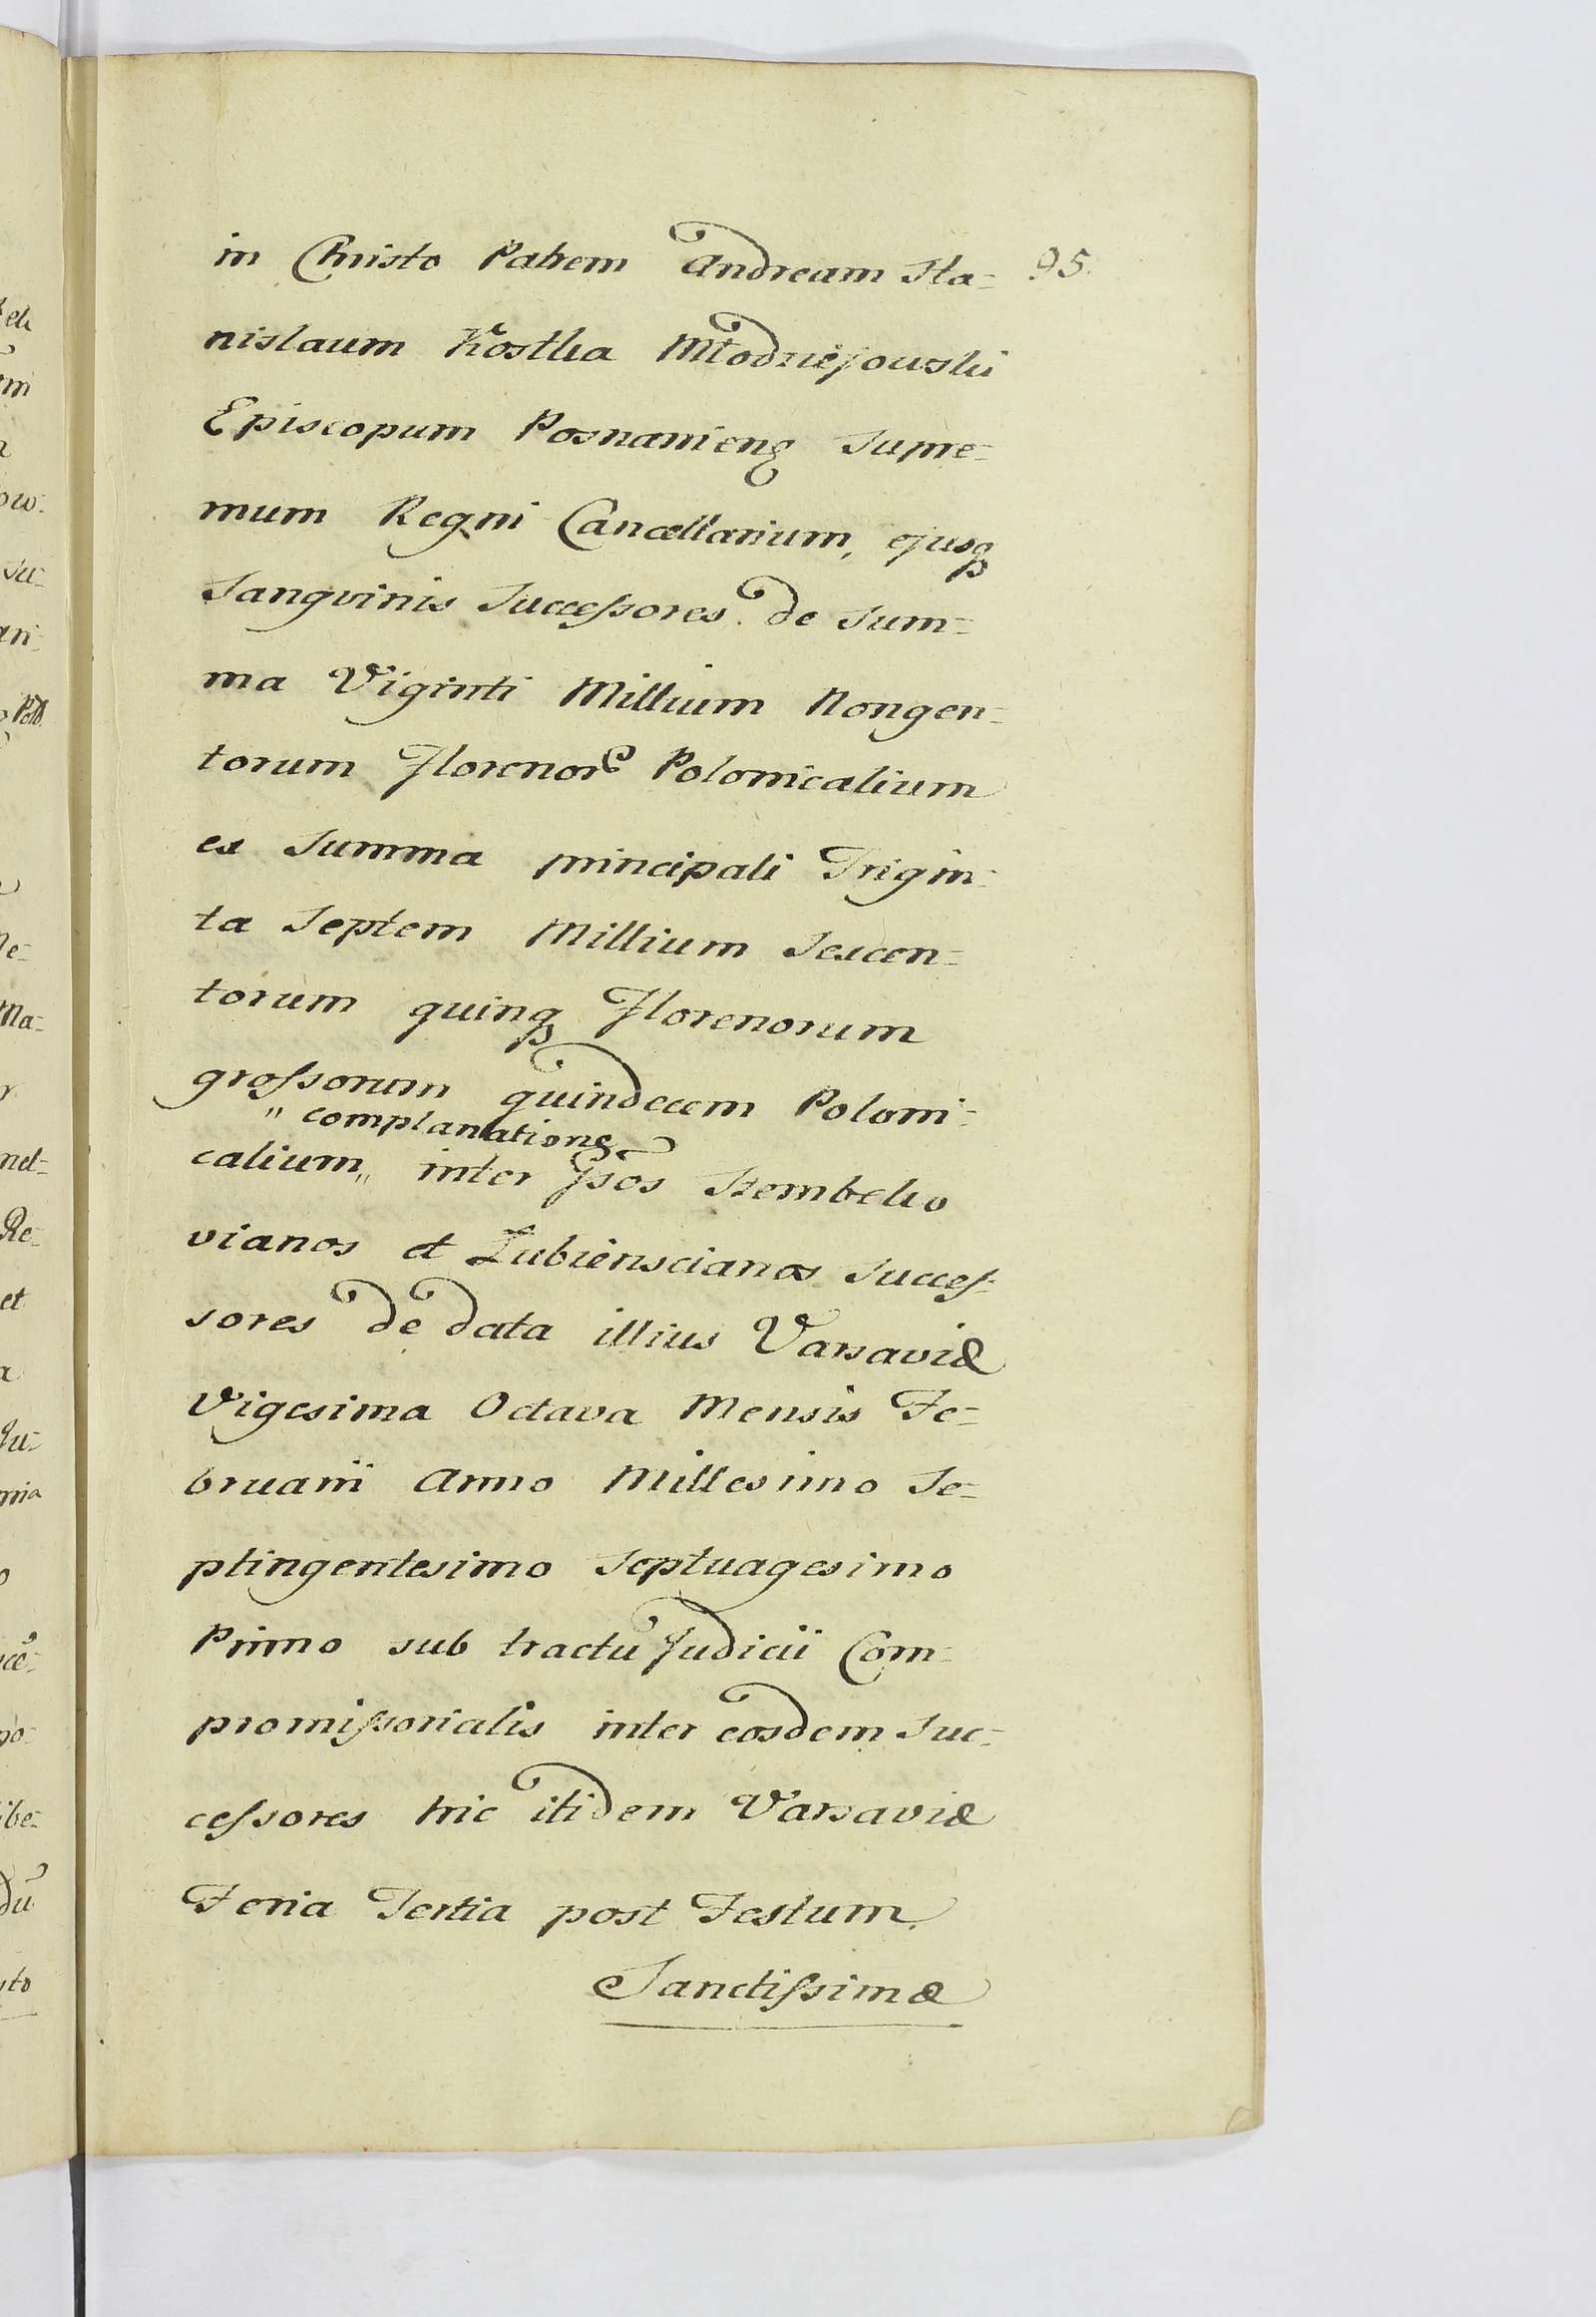 in Christo Patrem Andream Sta= 95.
nislaum Kostka Młodziejowski
Episcopum Posnanieng Supre=
mum Regni Cancellarium, ejusq
Sangvinis Succeſsores de Sum=
ma Viginti Millium Nongen=
torum Florenor Polonicalium
ex Summa principali Trigin=
ta Septem Millium Sexcen=
torum quinq Florenorum
groſsorum quindecem Poloni=
" complanatione
calium,, inter Ipsos Szembeko
vianos et Łubienscianos Succeſ=
sores de data illius Varsaviæ
Vigesima Octava Mensis Fe=
bruarii Anno Millesimo Se=
ptingentesimo Septuagesimo
Primo sub tractu Judicii Com=
promiſsorialis inter eosdem Suc=
ceſsores hic itidem Varsaviæ
Feria Tertia post Festum
Sanctiſsimæ